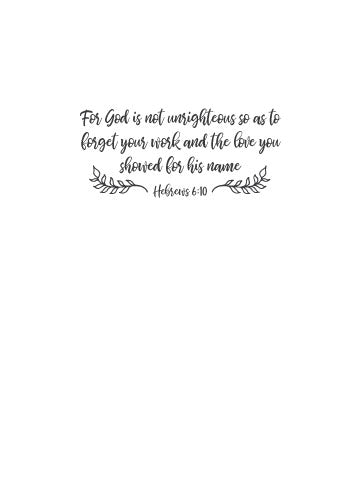 For God is not unrighteous so as to
forget your work and the love you
showed for his name
Hebrews 6:10